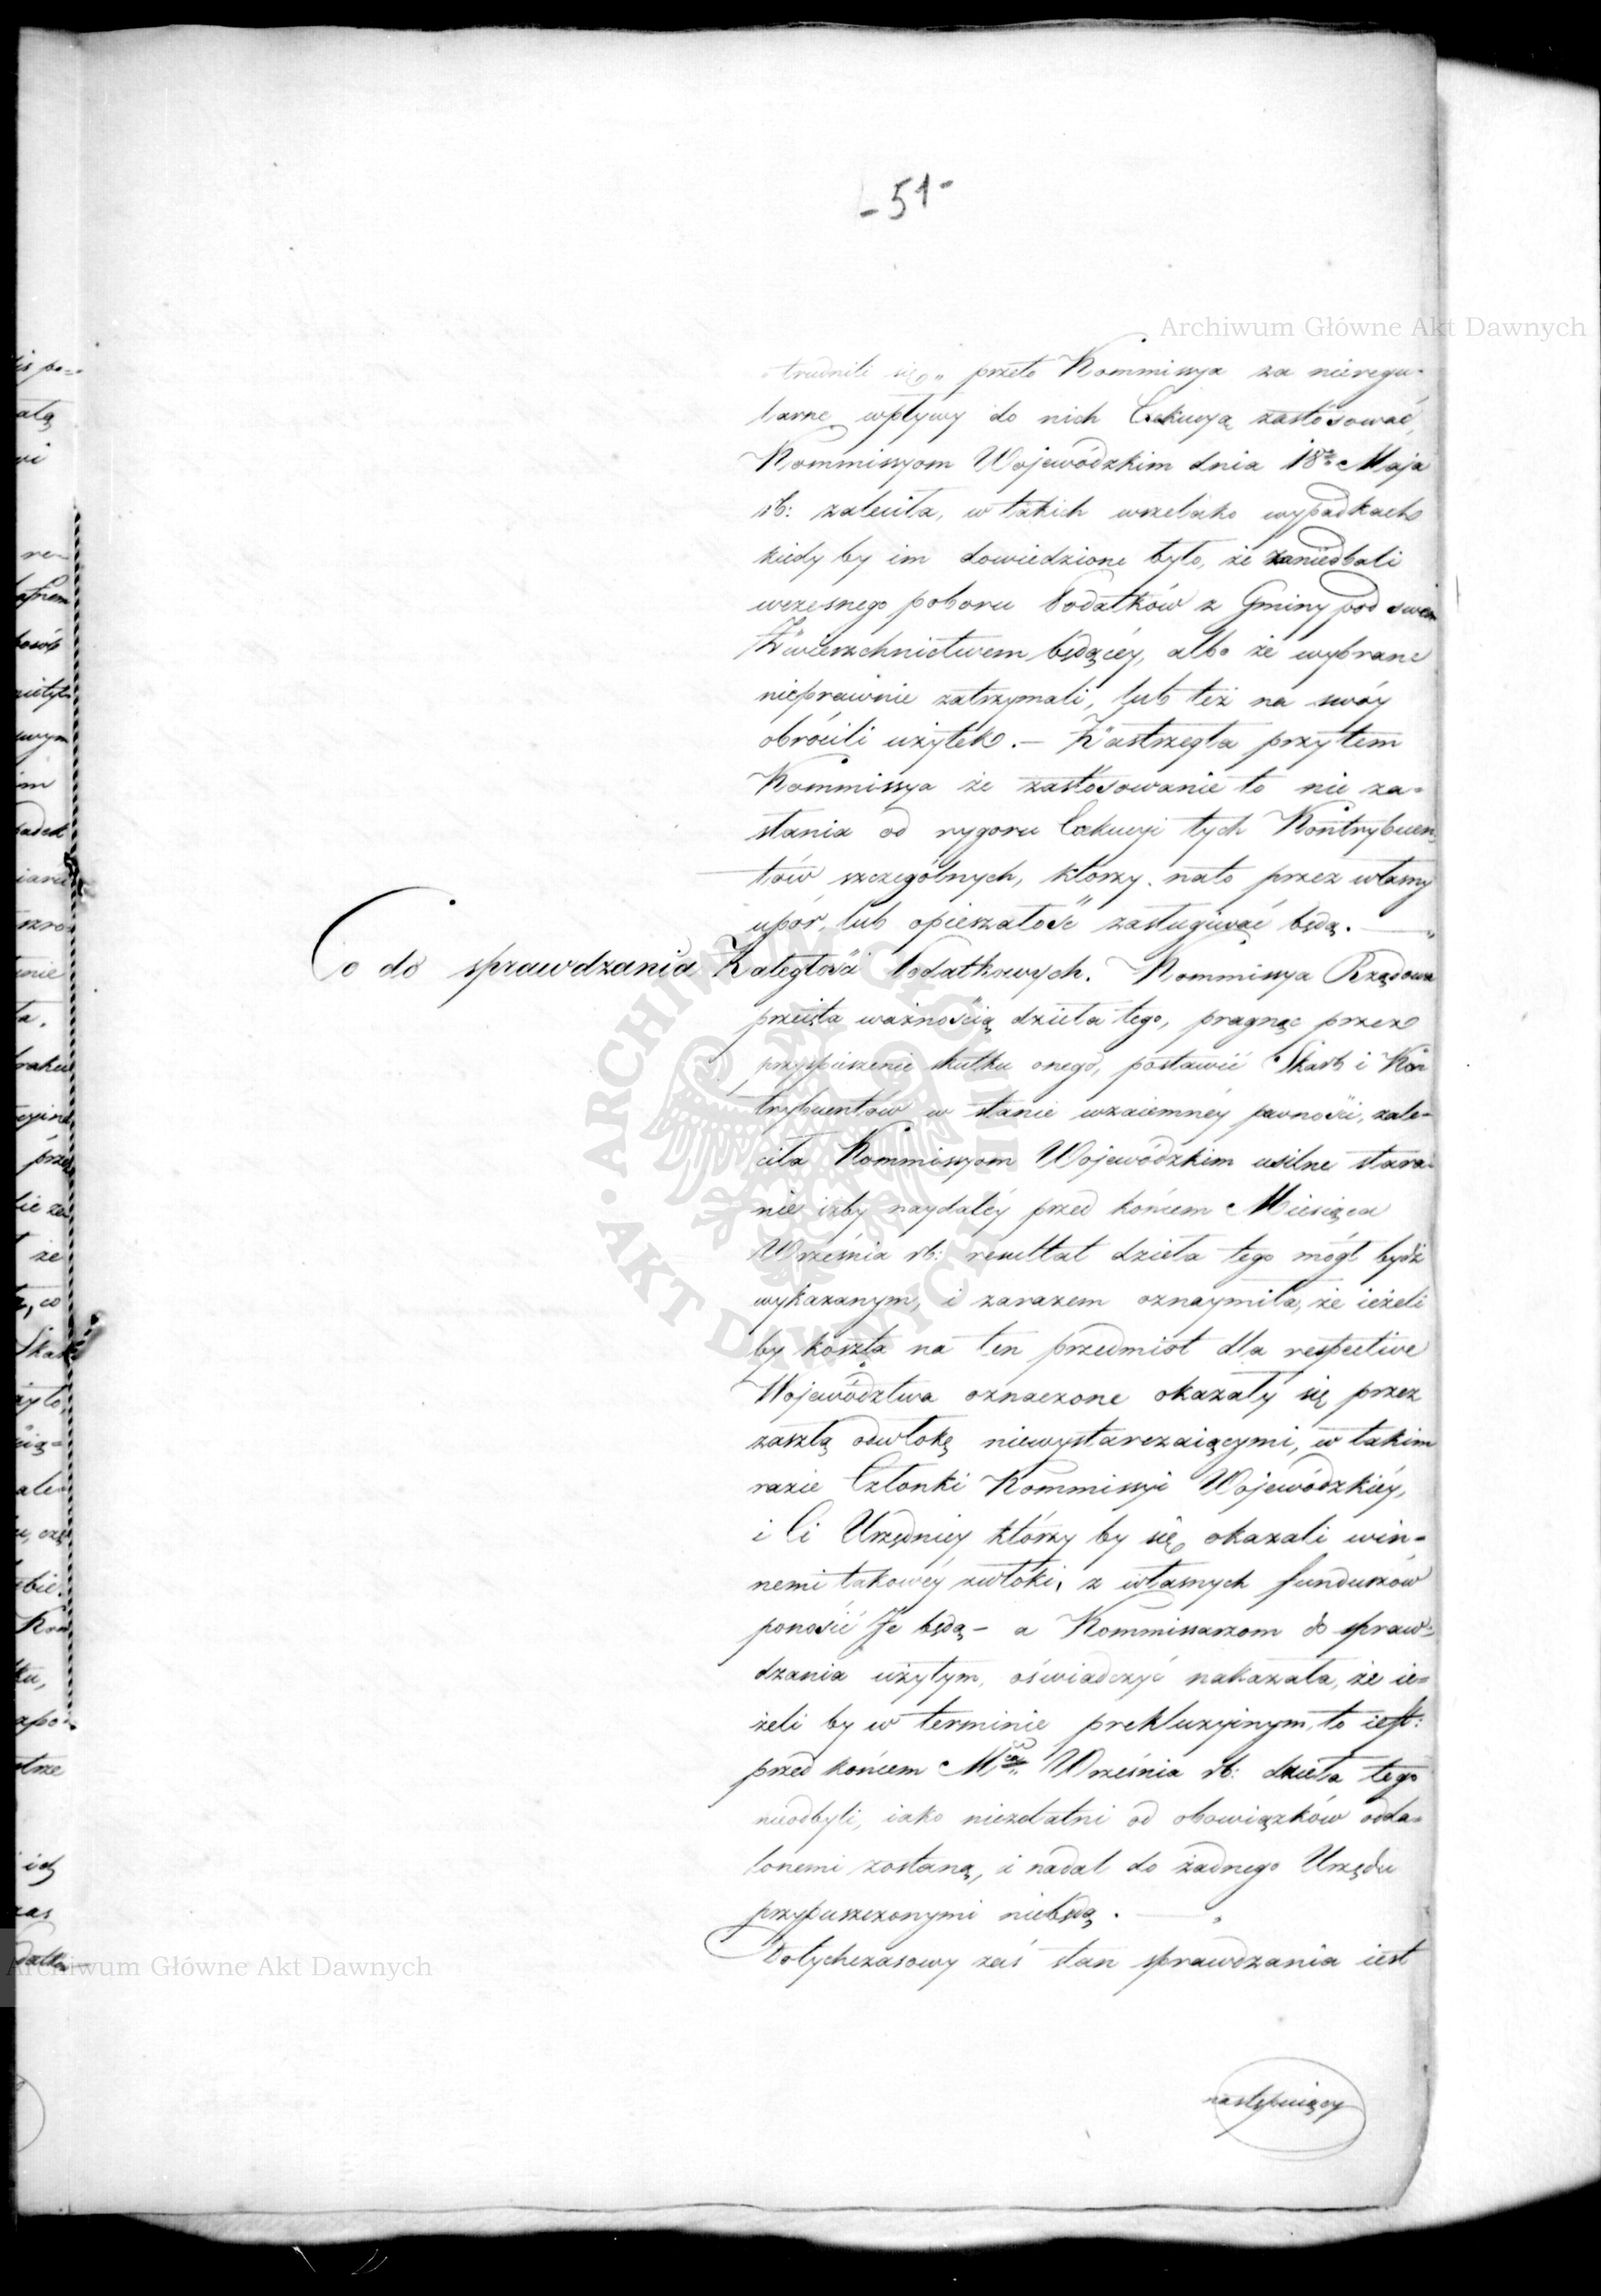 - 51 -
Archiwum Główne Akt Dawnych
trudnili się„ przeto Kommissya za nieregu-
larne wpływy do nich Exekucyą zastosować,
Kommissyom Wojewódzkim dnia 18go Maja
rb: zaleciła, w takich wszelako wypadkach
kiedy by im dowiedzione było, że zaniedbali
wczesnego poboru Podatków z Gminy pod swem
Zwierzchnictwem będącéy, albo że wybrane
nieprawnie zatrzymali, lub też na swóy
obrócili użytek. – Zastrzegła przytem
Kommissya że zastosowanie to nie za-
słania od rygoru Exekucyi tych Kontrybuen-
tów szczególnych, którzy nato przez własny
upór, lub opieszałość zasługiwać będą. —
Co do sprawdzania Zaległości Podatkowych. Kommissya Rządowa
przeięta ważnością dzieła tego, pragnąc przez
przyspieszenie skutku onego, postawić Skarb i Kon
trybuentów w stanie wzaiemnéy pewności, zale-
ciła Kommissyom Wojewódzkim usilne stara-
nie iżby naydaléy przed końcem Miesiąca
Września rb: rezultat dzieła tego mógł bydź
wykazanym, i zarazem oznaymiła, że ieżeli
by koszta na ten przedmiot dla respective
Województwa oznaczone okazały się przez
zaszłą odwłokę niewystarczaiącymi, w takim
razie Członki Kommissyi Wojewódzkiéy,
i Ci Urzędnicy którzy by się okazali win-
nemi takowéy zwłoki, z własnych funduszów
ponosić Je będą – a Kommissarzom do spraw-
dzania użytym, oświadczyć nakazała, że ie-
żeli by w terminie prekluzyinym, to iest:
przed końcem Mca Września rb: dzieła tego
nieodbyli, iako niezdatni od obowiązków odda-
lonemi zostaną, i nadal do żadnego Urzędu
przypuszczonymi niebędą. —
Dotychczasowy zaś stan sprawdzania iest
Archiwum Główne Akt Dawnych
następuiący
ARCHIWUM GŁÓWNE AKT DAWNYCH